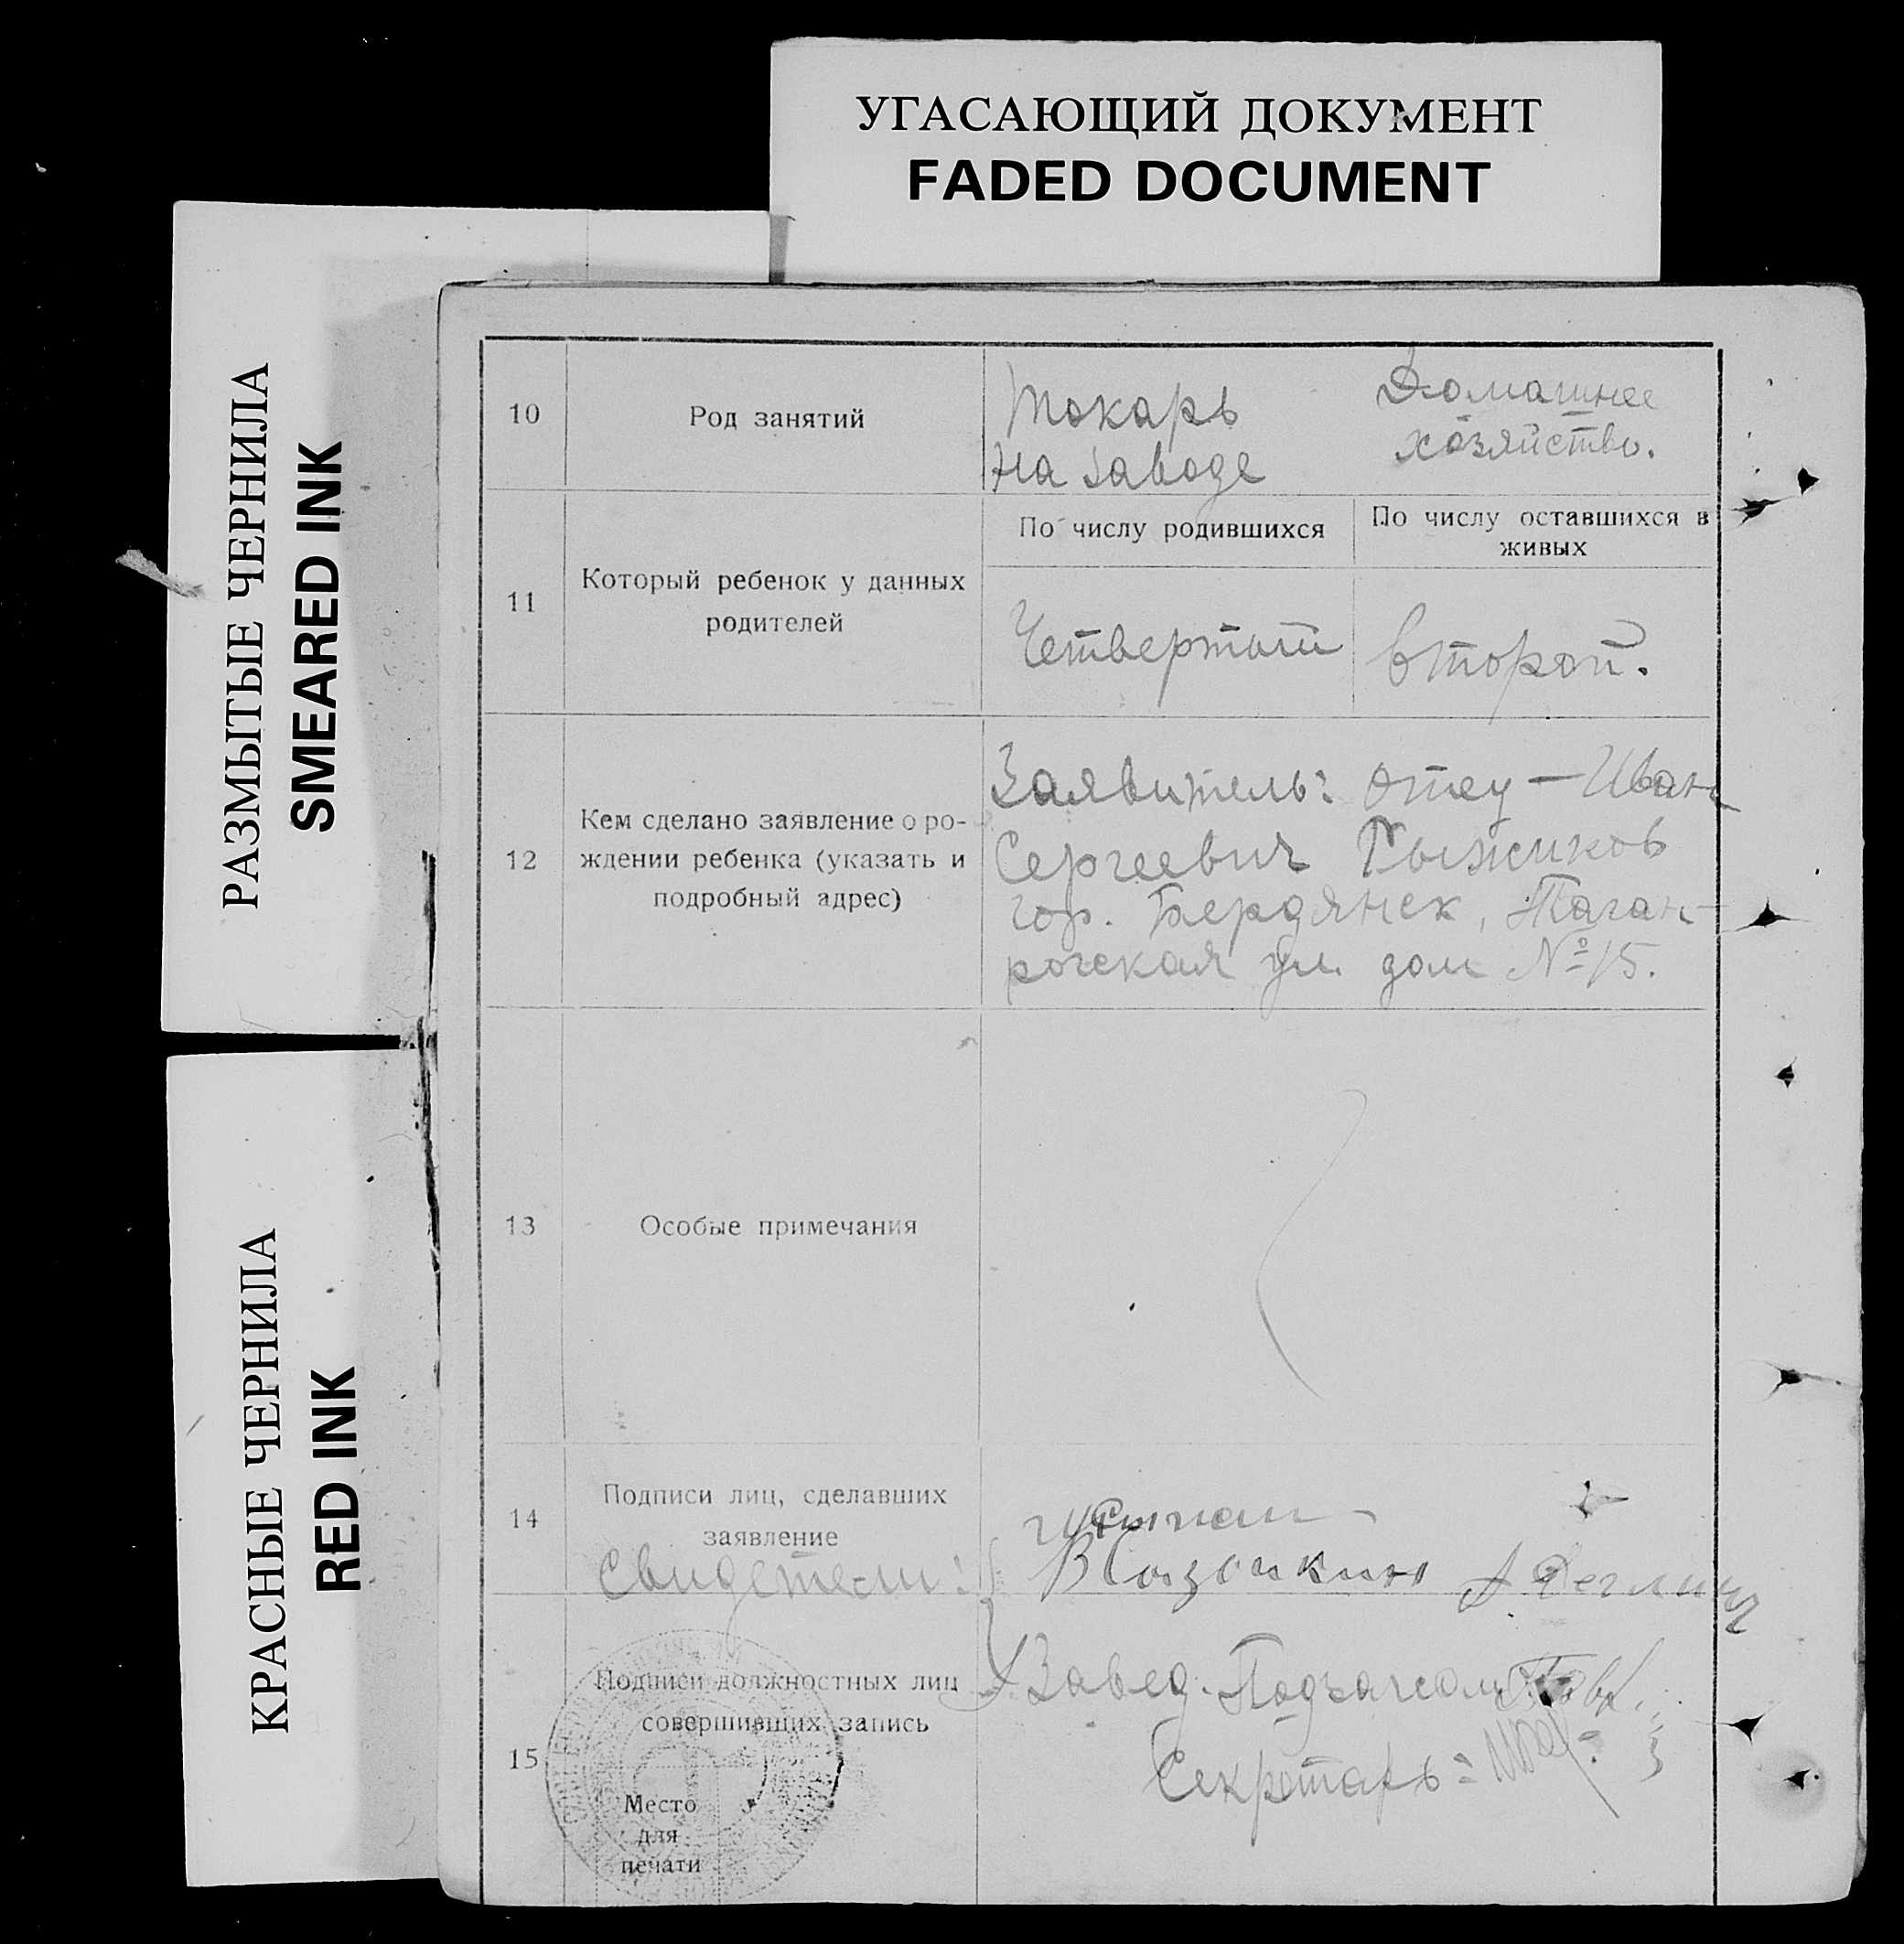 УГАСАЮЩИЙ ДОКУМЕНТ
FADED DOCUMENT
РАЗМЫТЫЕ ЧЕРНИЛА
SMEARED INK
КРАСНЫЕ ЧЕРНИЛА
RED INK
10
Род занятий
Токарь
на заводе
Домашнее
хозяйство.
11
Который ребенок у данных
родителей
По числу родившихся
По числу оставшихся в
живых
Четвертый
второй.
12
Кем сделано заявление о ро-
ждении ребенка (указать и
подробный адрес)
Заявитель: отец — Иван
Сергеевич Рыжиков
гор. Бердянск, Таган-
рогская ул. дом № 15.
13
Особые примечания
14
Подписи лиц, сделавших
заявление
Свидетели:
15
Подписи должностных лиц
совершивших запись
Место
для
печати
Завед.
Секретарь: